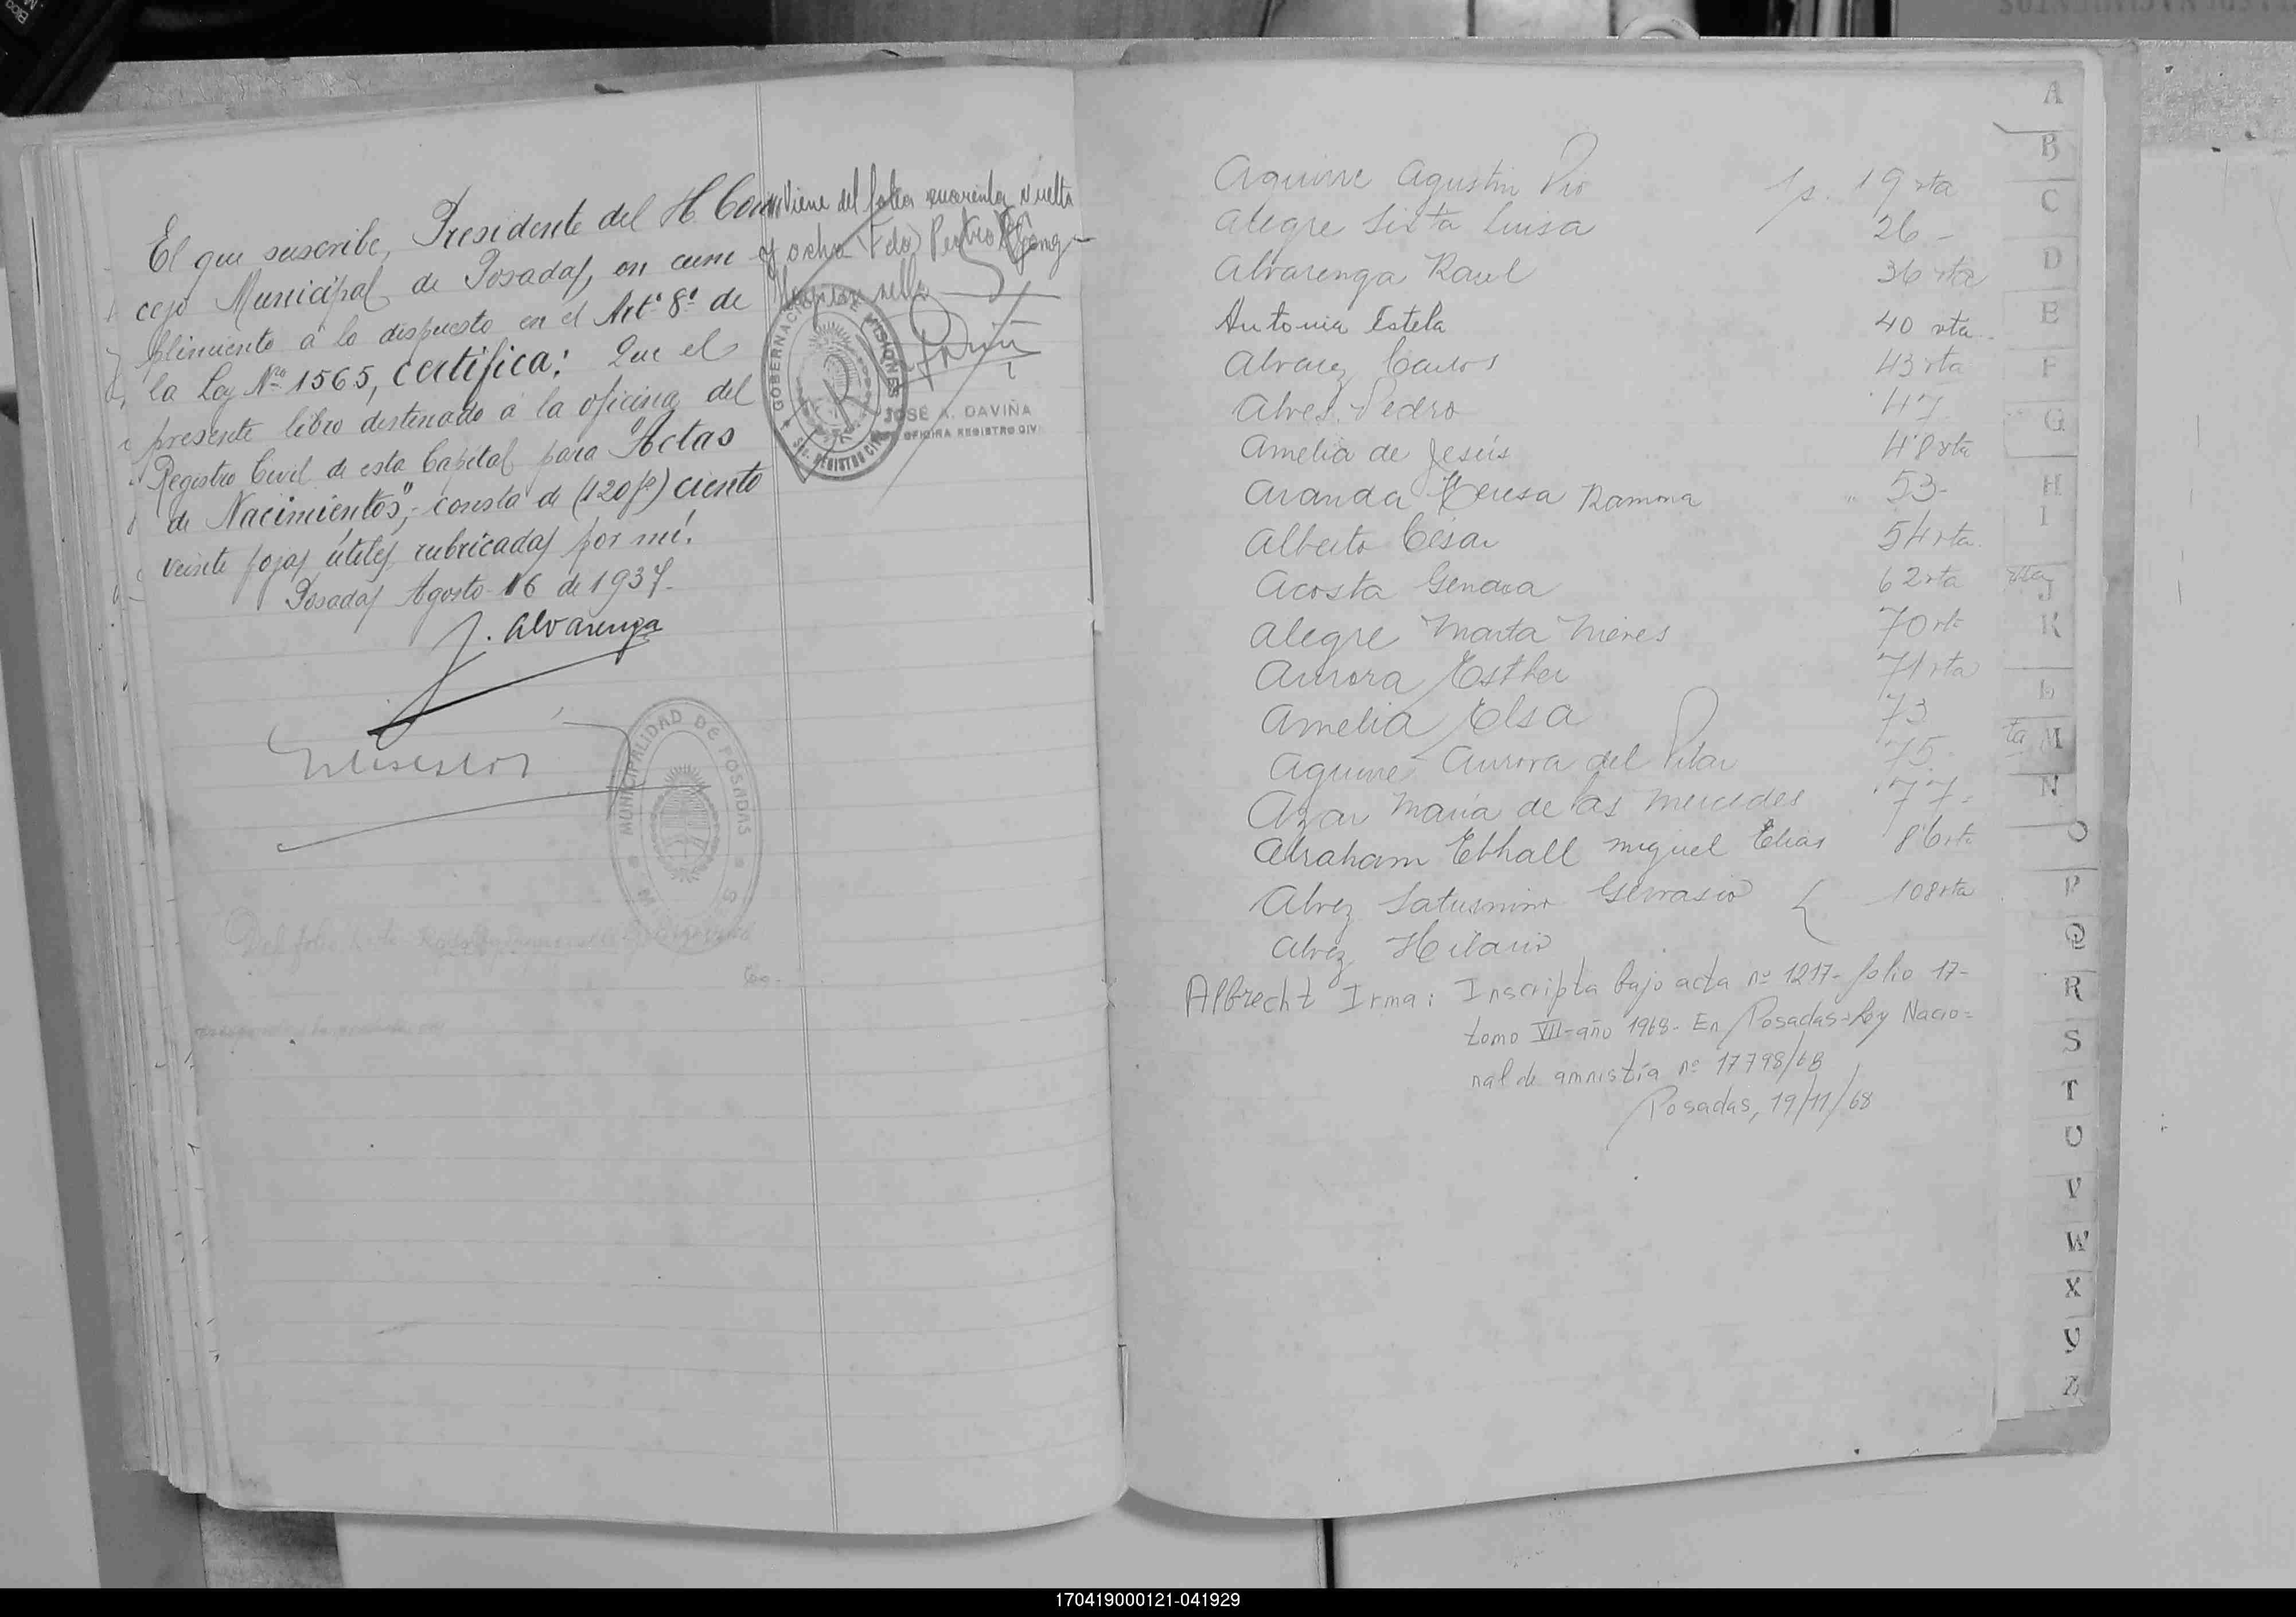 El que suscribe, Presidente del H. Con
cejo Municipal de Posadas, en cum
plimiento á lo dispuesto en el Artº 8º de
la Ley Nº 1565, certifica: Que el
presente libro destinado á la oficina del
Registro Civil de esta Capital para "Actas
de Nacimientos", consta de (120 fs) ciento
veinte fojas útiles, rubricadas por mí.
Posadas Agosto 16 de 1937.
J. Alvarenga
MUNICIPALIDAD DE POSADAS
Viene del folio cuarenta vuelta
y ocho Fdo) Pedro
GOBERNACION DE MISIONES
REGISTRO CIVIL
JOSÉ A. DAVIÑA
OFICINA REGISTRO CIV
Del folio
Aguirre Agustin Pio 19 vta
Alegre Sixta Luisa 26 -
Alvarenga Raul 36 vta
Antonia Estela 40 vta.
Alvarez Carlos 43 vta
Alvez Pedro 47
Amelia de Jesús 48 vta
Aranda Teresa Ramona " 53-
Alberto César 54 vta.
Acosta Genara 62 vta
Alegre Marta Nieves 70 vta
Aurora Esther 71 vta
Amelia Elsa 73
Aguirre Aurora del Pilar 75.
Azar María de las Mercedes 77=
Abraham Ebhall Miguel Elias 86 vta
Alvez Saturnino Gervasio { 108 vta
Alvez Hilario
Albrecht Irma: Inscripta bajo acta nº 1217- folio 17-
tomo VII- año 1968- En Posadas- Ley Nacio=
nal de amnistía nº 17798/68
Posadas, 19/11/68
A
B
C
D
E
F
G
H
I
J
K
L
M
N
O
P
Q
R
S
T
U
V
W
X
Y
Z
170419000121-041929